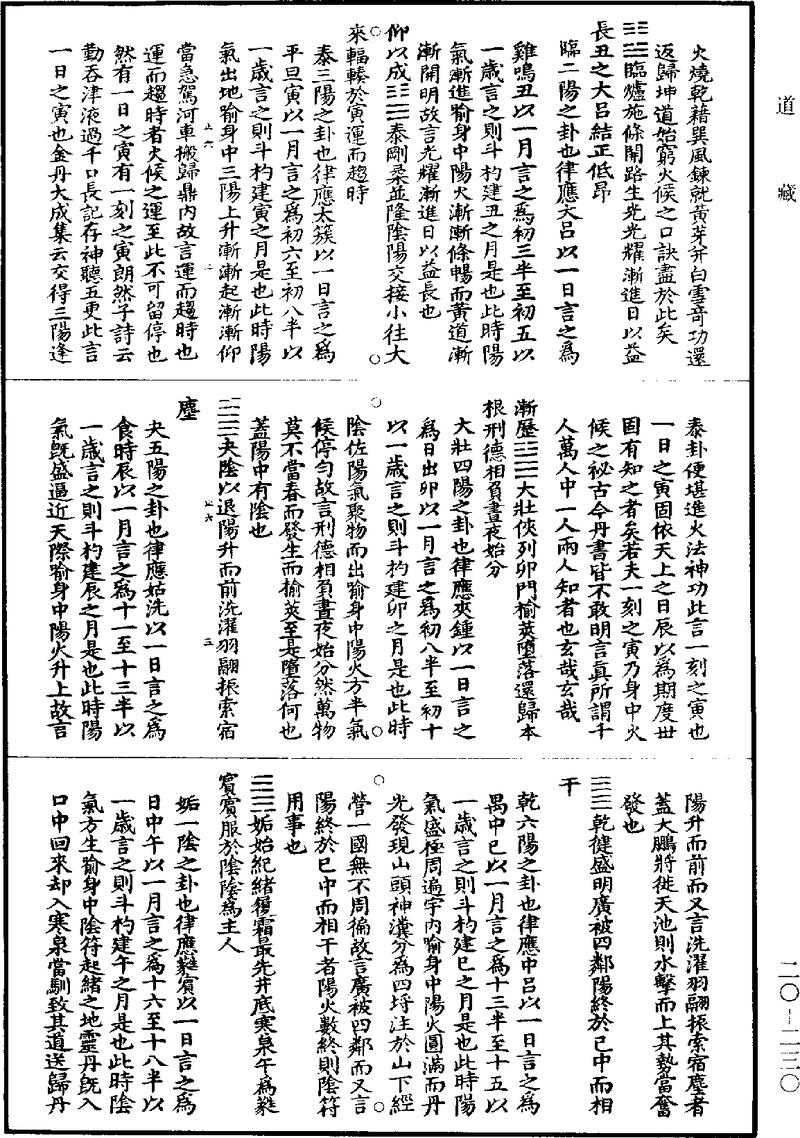 道藏
火燒乾藉巽風鍊就黃芽并白雪奇功還
返歸坤道始窮火候之口訣盡於此矣
☷☱臨爐施條開路生光光耀漸進日以益
長丑之大呂結正低昂
臨二陽之卦也律應大呂以一日言之為
雞鳴丑以一月言之為初三半至初五以
一歲言之則斗杓建丑之月是也此時陽
氣漸進喻身中陽火漸漸條暢而黃道漸
漸開明故言光耀漸進日以益長也
仰以成☷☰泰剛柔並隆陰陽交接小往大
來輻輳於寅運而趨時
泰三陽之卦也律應太簇以一日言之為
平旦寅以一月言之為初六至初八半以
一歲言之則斗杓建寅之月是也此時陽
氣出地喻身中三陽上升漸漸起漸漸仰
當急駕河車搬歸鼎內故言運而趨時也
運而趨時者火候之運至此不可留停也
然有一日之寅有一刻之寅朗然子詩云
勤吞津液過千口長記存神聽五更此言
一日之寅也金丹大成集云交得三陽逢
泰卦便堪進火法神功此言一刻之寅也
一日之寅固依天上之日辰以為期度世
固有知之者矣若夫一刻之寅乃身中火
候之祕古今丹書皆不敢明言真所謂千
人萬人中一人兩人知者也玄哉玄哉
漸歷☳☰大壯俠列卯門榆莢墮落還歸本
根刑德相負晝夜始分
大壯四陽之卦也律應夾鍾以一日言之
為日出卯以一月言之為初八半至初十
以一歲言之則斗杓建卯之月是也此時
陰佐陽氣聚物而出喻身中陽火方半氣
候停勻故言刑德相負晝夜始分然萬物
莫不當春而發生而榆莢至是墮落何也
蓋陽中有陰也
☱☰夬陰以退陽升而前洗濯羽翮振索宿
塵
夬五陽之卦也律應姑洗以一日言之為
食時辰以一月言之為十一至十三半以
一歲言之則斗杓建辰之月是也此時陽
氣既盛逼近天際喻身中陽火升上故言
陽升而前而又言洗濯羽翮振索宿塵者
蓋大鵬將徙天池則水擊而上其勢當奮
發也
☰☰乾健盛明廣被四鄰陽終於巳中而相
干
乾六陽之卦也律應中呂以一日言之為
禺中巳以一月言之為十三半至十五以
一歲言之則斗杓建巳之月是也此時陽
氣盛極周遍宇內喻身中陽火圓滿而丹
光發現山頭神瀵分為四埒注於山下經
營一國無不周徧故言廣被四鄰而又言
陽終於巳中而相干者陽火數終則陰符
用事也
☰☴姤始紀緒履霜最先井底寒泉午為蕤
賓賓服於陰陰為主人
姤一陰之卦也律應蕤賓以一日言之為
日中午以一月言之為十六至十八半以
一歲言之則斗杓建午之月是也此時陰
氣方生喻身中陰符起緒之地靈丹既入
口中回來却入寒泉當馴致其道送歸丹
二〇－二三〇